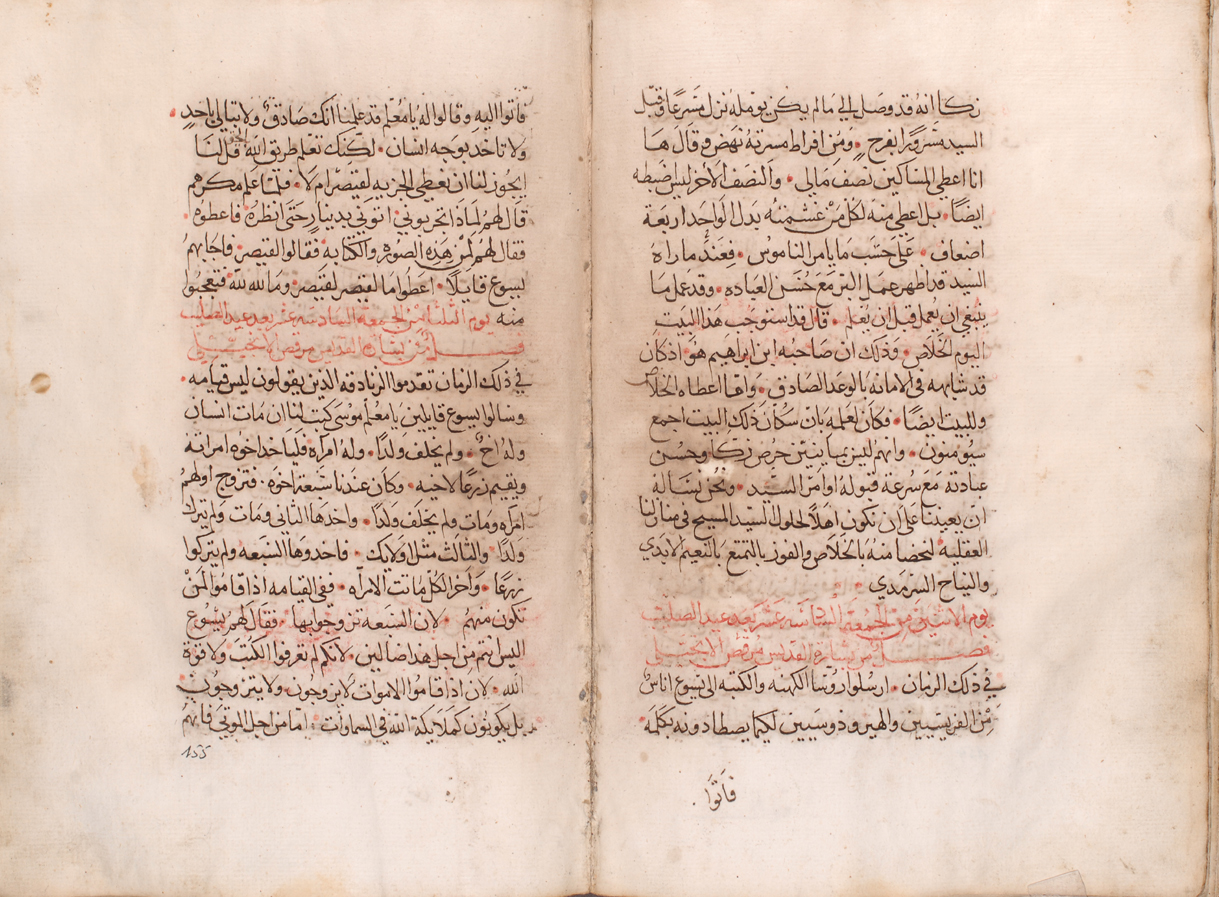 زكا انه قد وصل الي ما لم يكن يومله نزل مسرعا وقبل
السيد مسرورا بفرح • ومن افراط مسرته نهض وقال ها
انا اعطي المساكين نصف مالي • والنصف الاخر ليس اضبطه
ايضا • بل اعطي منه لكل من غشمته بدل الواحد اربعة
اضعاف • علي حسب ما يامر الناموس • فعند ما راه
السيد قد اظهر عمل البر مع حسن العباده • وقد عمل ما
ينبغي ان يعمل قبل ان يعلم • قال قد استوجب هذا البيت
اليوم الخلاص • وذلك ان صاحبه ابن ابراهيم هو • اذ كان
قد شابهه في الامانه بالوعد الصادق • وانما اعطاه الخلاص
وللبيت ايضا • فكان لعلمه بان سكان ذلك البيت اجمع
سيومنون • وانهم ليبين حرص زكا وحسن
عبادته مع سرعة قبوله اوامر السيد • ونحن نساله
ان يعيدنا علي ان نكون اهلا لحلول السيد المسيح في منازلنا
العقليه لنحضا منه بالخلاص والفوز بالتمتع بالنعيم الابدي
والنياح السرمدي •
يوم الاثنين من الجمعة السادسه عشر بعد عيد الصليب
فصل من بشارة القديس مرقص الانجيلي
في ذلك الزمان • ارسلوا روسا الكهنه والكتبه الي يسوع اناس
من الفريسيين والهيرودوسيين لكيما يصطادونه بكلمه •
فاتوا
فاتوا اليه وقالوا له يا معلم قد علمنا انك صادق ولا تبالي باحد •
ولا تاخد بوجه انسان • لكنك تعلم طريق الله الحق قل لنا
ايجوز لنا ان نعطي الجزيه لقيصر ام لا • فلما علم مكرهم
قال لهم لماذا تجربوني • اتوني بدينار حتي انظره فاعطوه •
فقال لهم لمن هذه الصوره والكتابه فقالوا لقيصر • فاجابهم
يسوع قايلا • اعطوا ما لقيصر لقيصر • وما لله لله فتعجبوا
منه يوم الثلثا من الجمعه السادسه عشر بعد عيد الصليب
فصل من بشارة القديس مرقص الانجيلي
في ذلك الزمان تقدموا الزنادقه الذين يقولون ليس قيامه •
وسالوا يسوع قايلين يا معلم موسي كتب لنا ان مات انسان
وله اخ • ولم يخلف ولدا • وله امراه فلياخد اخوه امراته
ويقيم زرعا لاخيه • وكان عندنا سبعة اخوه • فتزوج اولهم
امراه ومات ولم يخلف ولدا • واخدها الثاني ومات ولم يترك
ولدا • والثالث مثل اولايك • فاخدوها السبعه ولم يتركوا
زرعا • واخر الكل ماتت الامراه • ففي القيامه اذا قاموا لمن
تكون منهم • لان السبعه تزوجوا بها • فقال لهم يسوع
اليس انتم من اجل هذا ضالين • لانكم لم تعرفوا الكتب ولا قوة
الله • لان اذا قاموا الاموات لا يزوجون ولا يتزوجون
بل يكونون كملايكة الله في السماوات : اما من اجل الموتي فانهم
155